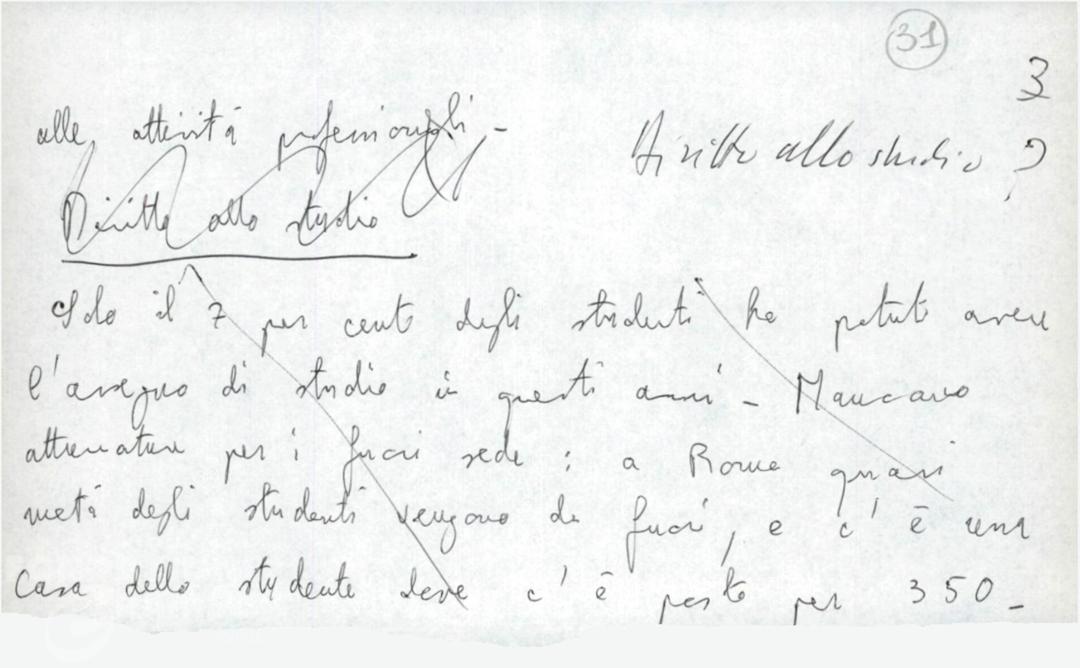 31
3
alle attività professionali -
Diritto allo studio ?
Diritto allo studio
Solo il 7 per cento degli studenti ha potuto avere
l'assegno di studio in questi anni - Mancano
attrezzature per i fuori sede : a Roma quasi
metà degli studenti vengono da fuori, e c'è una
Casa dello studente dove c'è posto per 350 -